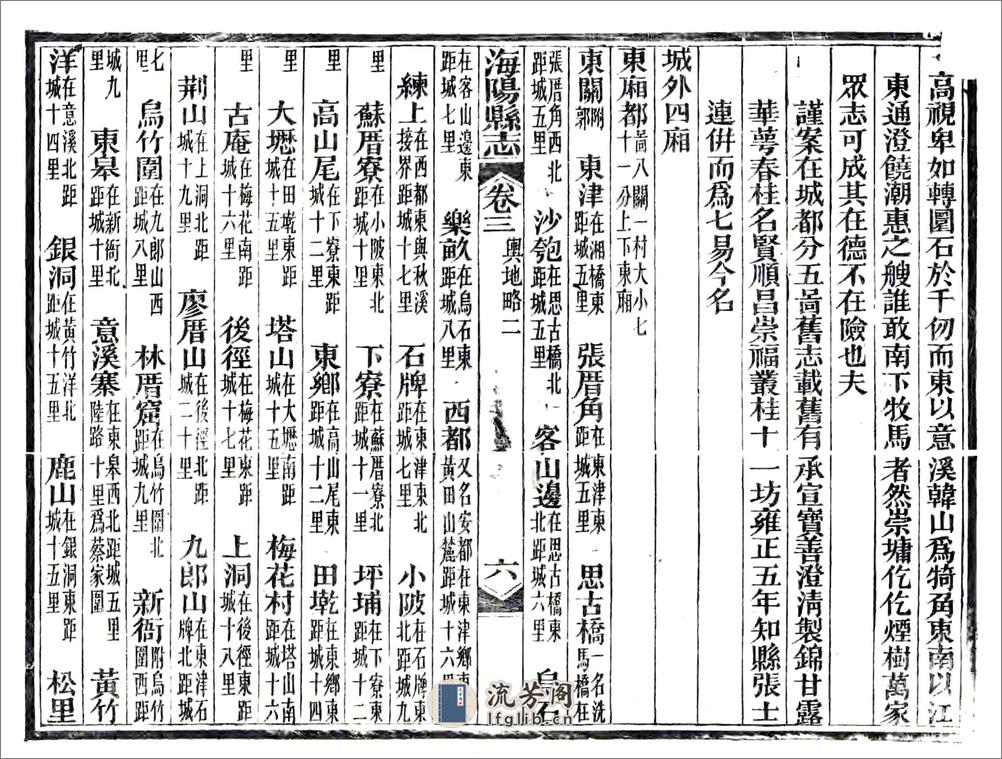 高視卑如轉圜石於千仞而東以意溪韓山爲犄角東南以江
東通澄饒潮惠之艘誰敢南下牧馬者然崇墉仡仡煙樹萬家
眾志可成其在德不在險也夫
謹案在城都分五啚舊志載舊有承宣寶善澄淸製錦甘露
華萼春桂名賢順昌崇福叢桂十一坊雍正五年知縣張士
連併而爲七易今名
城外四廂
東廂都啚八關一村大小七十一分上下東廂
東關附郭 東津在湘橋東距城五里 張厝角在東津東距城五里 思古橋一名洗馬橋在
張厝角西北距城五里 沙匏在思古橋北距城五里 客山邊在思古橋東北距城六里 烏石
海陽縣志 卷三 輿地略二 六
在客山邊東距城七里 樂畝在烏石東距城八里 西都又名安都在東津鄉東黃田山麓距城十六里
練上在西都東與秋溪接界距城十七里 石牌在東津東北距城七里 小陂在石牌北距城九
里 蘇厝寮在小陂東北距城十里 下寮在蘇厝寮北距城十一里 坪埔在下寮東北距城十二
里 高山尾在下寮東距城十二里 東鄉在高山尾東距城十二里 田墘在東鄉東距城十四
里 大壢在田墘東距城十五里 塔山在大壢南距城十五里 梅花村在塔山南距城十六
里 古庵在梅花南距城十六里 後徑在梅花東距城十七里 上洞在後徑東距城十八里
荆山在上洞北距城十九里 廖厝山在後徑北距城二十里 九郎山在東津石牌北距城
七里 烏竹圍在九郎山西距城八里 林厝窟在烏竹圍北距城九里 新衙附烏竹圍西距
城九里 東臯在新衙北距城十里 意溪寨在東臯西北距城五里陸路十里爲蔡家圍 黃竹
洋在意溪北距城十四里 銀洞在黃竹洋北距城十五里 鹿山在銀洞東距城十五里 松里
流芳阁
lfglib.cn